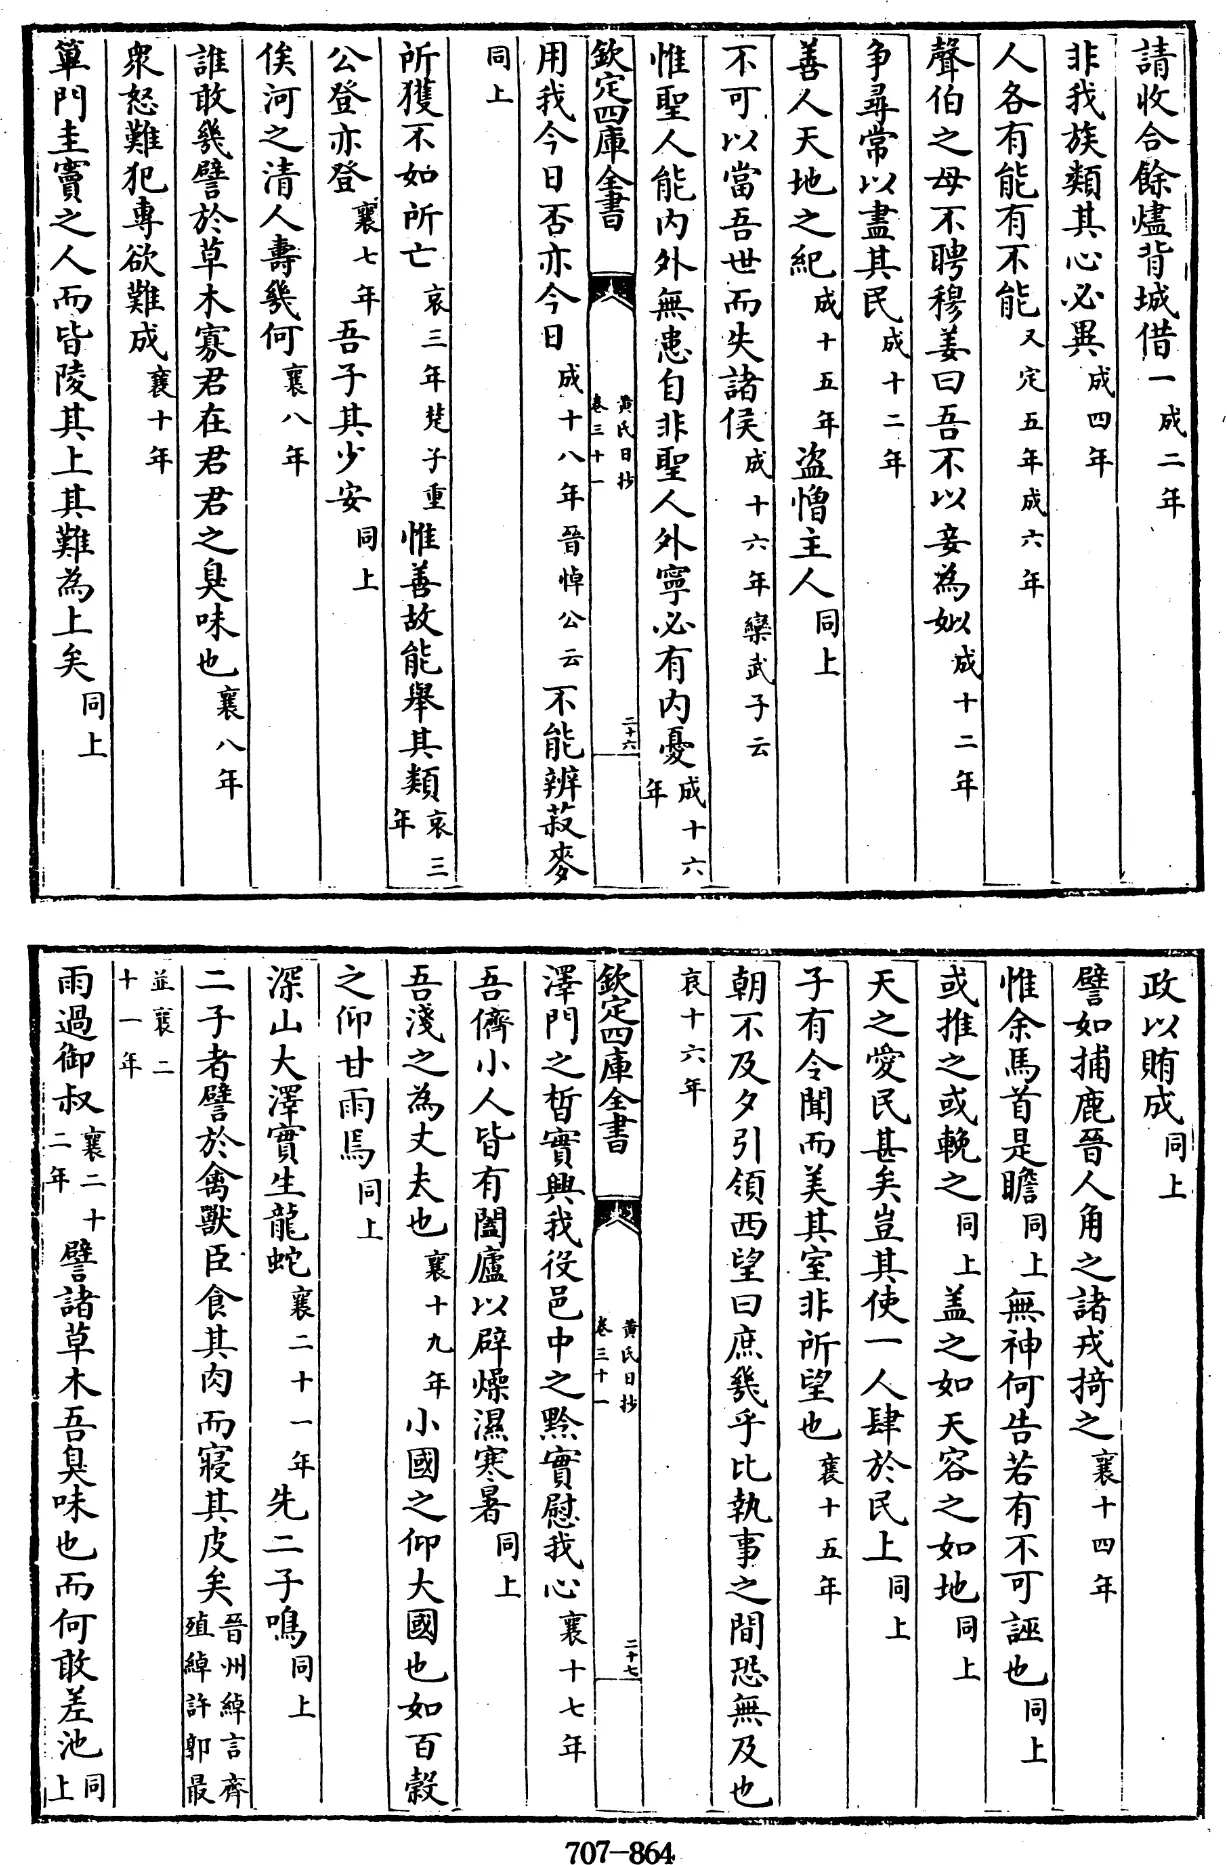 請收合餘燼背城借一成二年
非我族類其心必異成四年
人各有能有不能又定五年成六年
聲伯之母不聘穆姜曰吾不以妾為姒成十二年
争尋常以盡其民成十二年
善人天地之紀成十五年盜憎主人同上
不可以當吾世而失諸侯成十六年欒武子云
惟聖人能内外無患自非聖人外寧必有内憂成十六年
欽定四庫全書 黄氏日抄卷三十一 二十六
用我今日否亦今日成十八年晉悼公云不能辨菽麥
同上
所獲不如所亡哀三年楚子重惟善故能舉其類哀三年
公登亦登襄七年吾子其少安同上
俟河之清人壽幾何襄八年
誰敢幾譬於草木寡君在君君之臭味也襄八年
衆怒難犯專欲難成襄十年
篳門圭竇之人而皆陵其上其難為上矣同上
政以賄成同上
譬如捕鹿晉人角之諸戎掎之襄十四年
惟余馬首是瞻同上無神何告若有不可誣也同上
或推之或輓之同上盖之如天容之如地同上
天之愛民甚矣豈其使一人肆於民上同上
子有令聞而美其室非所望也襄十五年
朝不及夕引領西望曰庶幾乎比執事之間恐無及也
哀十六年
欽定四庫全書 黄氏日抄卷三十一 二十七
澤門之晳實興我役邑中之黔實慰我心襄十七年
吾儕小人皆有闔廬以辟燥濕寒暑同上
吾淺之為丈夫也襄十九年小國之仰大國也如百穀
之仰甘雨焉同上
深山大澤實生龍蛇襄二十一年先二子鳴同上
二子者譬於禽獸臣食其肉而寢其皮矣晉州綽言齊殖綽許郭最
並襄二十一年
雨過御叔襄二十二年譬諸草木吾臭味也而何敢差池同上
707-864